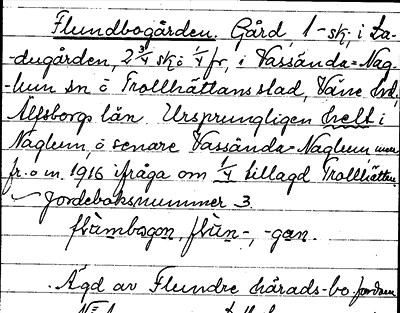 Flundbogården. Gård, 1 sk, i La-
-dugården, 2 3/4 sk o 1/4 fr, i Vassända=Nag-
-lum sn o Trollhättans stad, Väne hd,
Älfsborgs län. Ursprungligen helt i
Naglum, o senare Vassända=Naglum men
fr. o m. 1916 ifråga om 1/4 tillagd Trollhättan.
Jordeboksnummer 3.
-, -gan.
Ägd av Flundre härads-bo